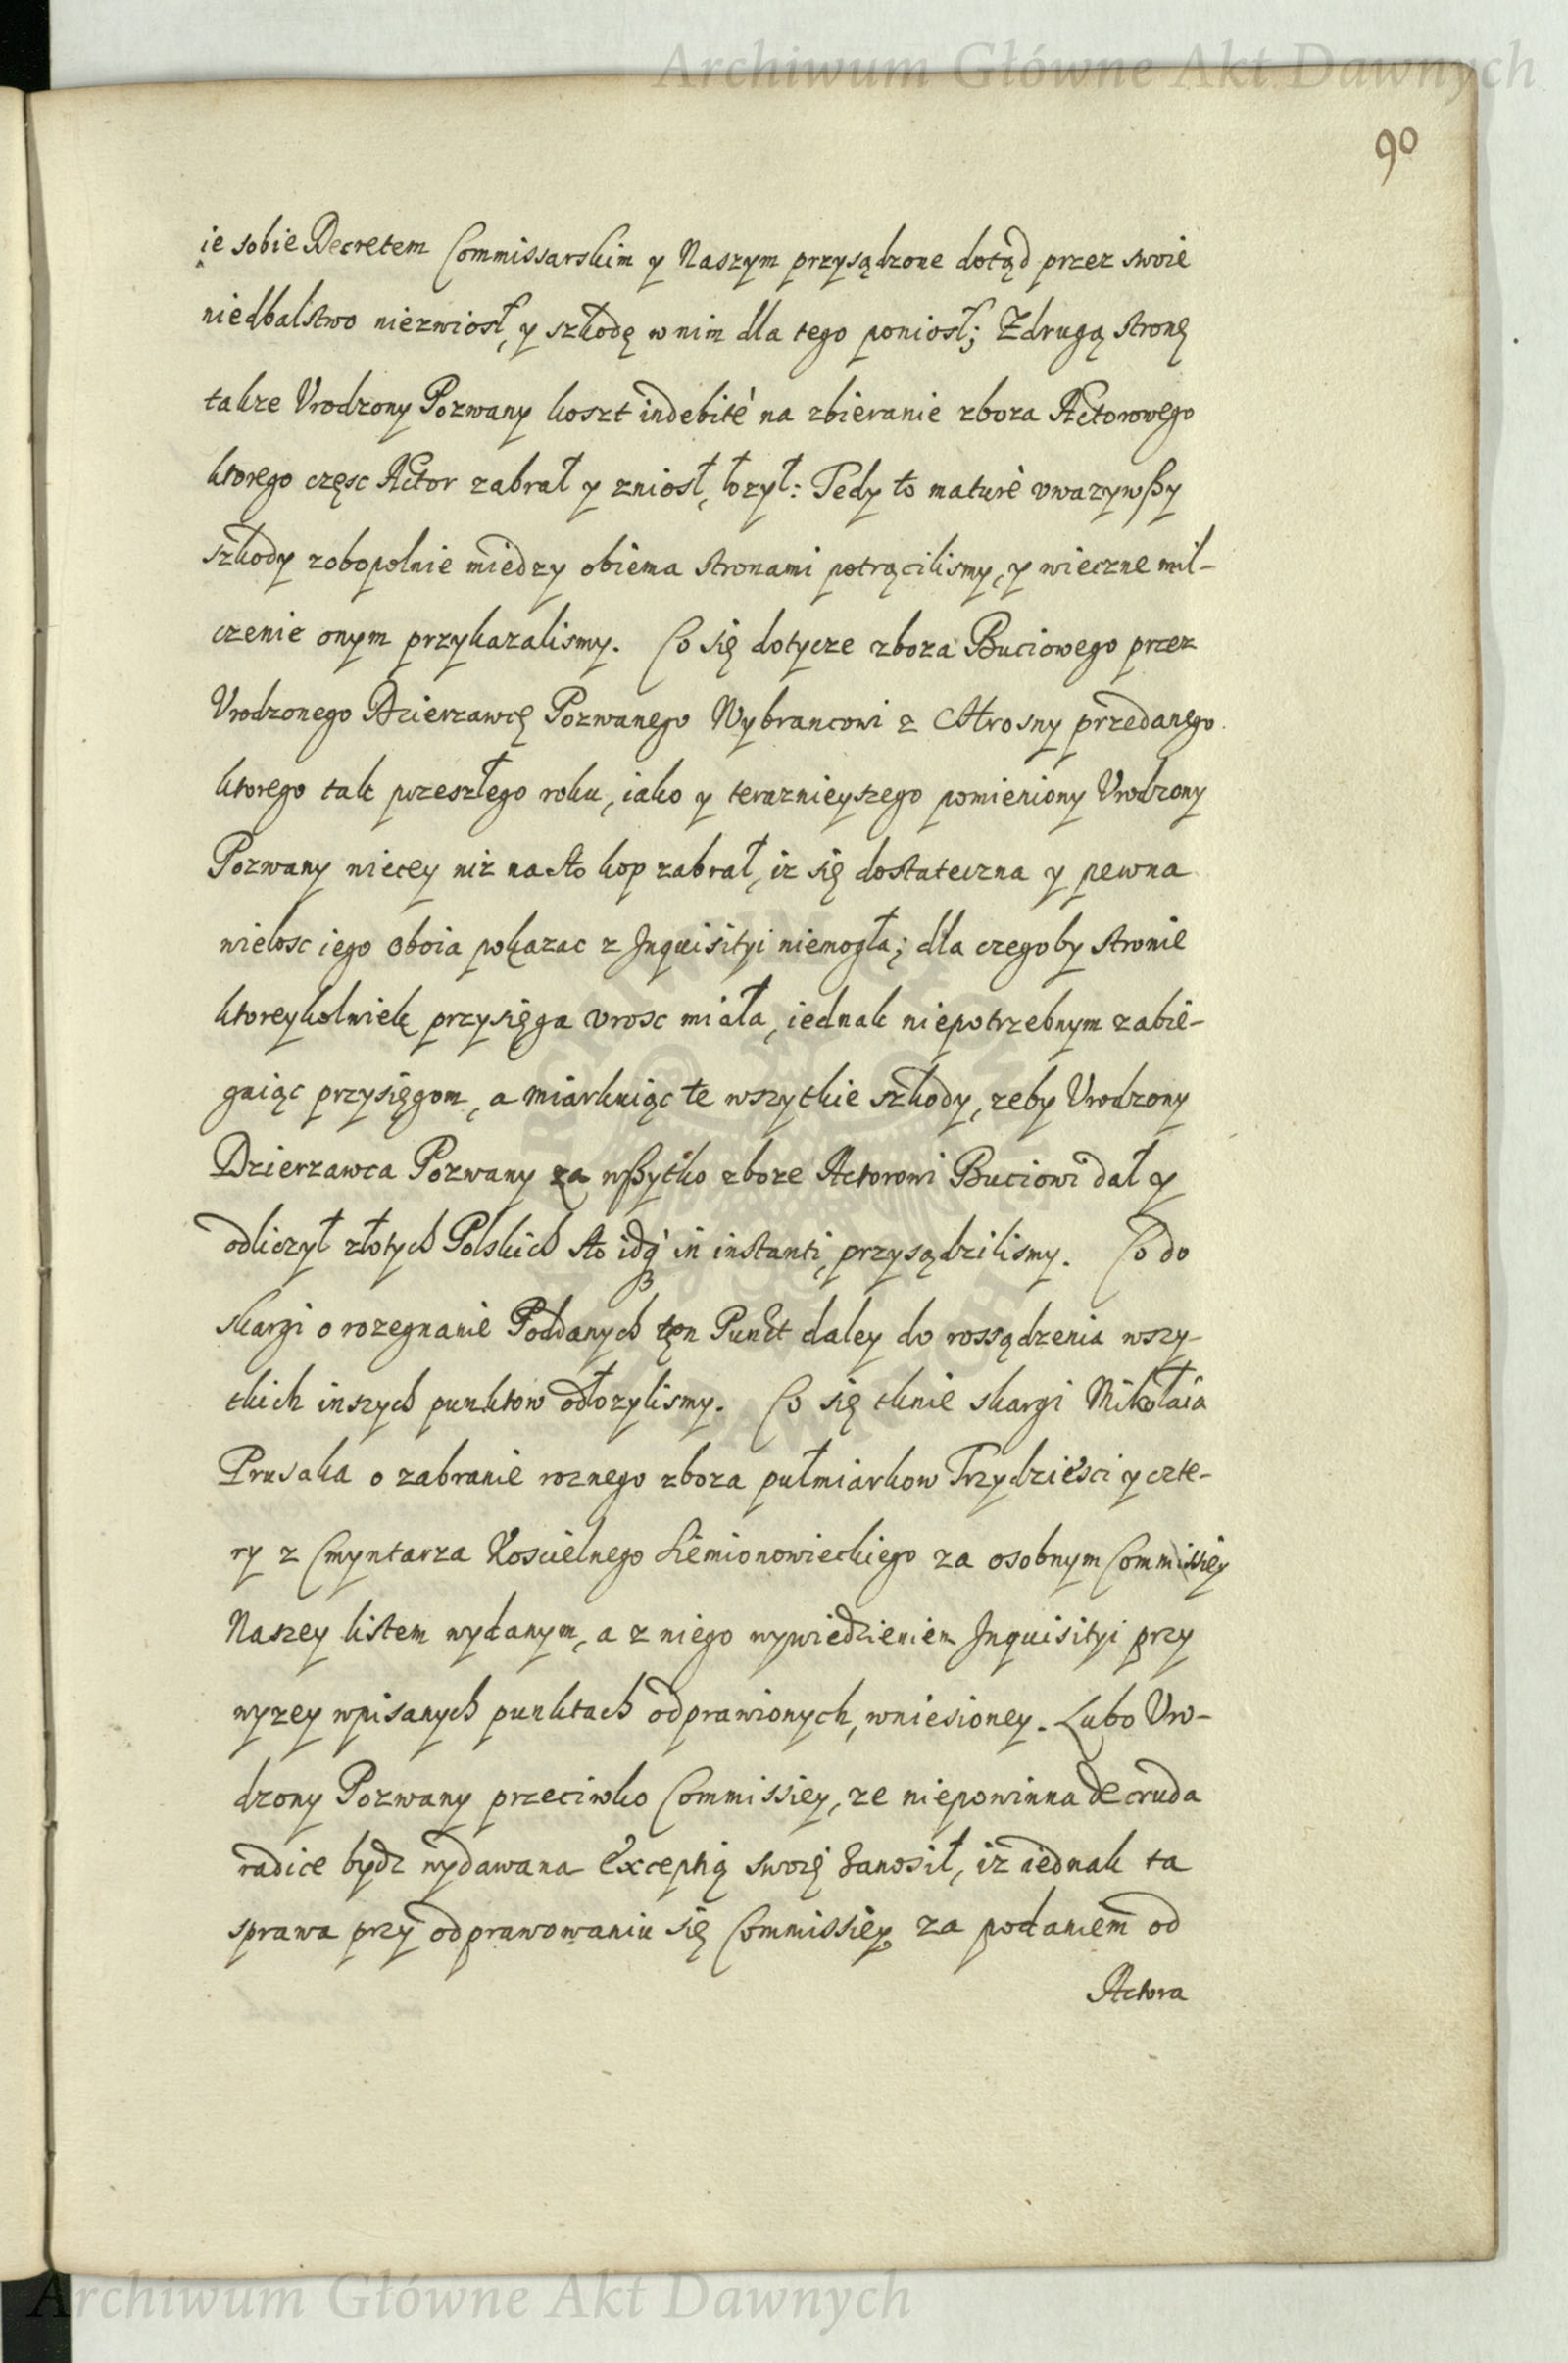 Archiwum Główne Akt Dawnych
90
ie sobie Decretem Commissarskim y Naszym przysądzone dotąd przez swoie
niedbalstwo niezwiosł, y szkodę w nim dla tego poniosł; Zdrugą stronę
takze Vrodzony Pozwany koszt indebitè na zbieranie zboza Actorowego
ktorego częsc Actor zabrał y zniosł, łozył: Tedy to maturè vwazywszy
szkody zobopolnie miedzy obiema stronami potrącilismy, y wieczne mil-
czenie onym przykazalismy. Co się dotycze zboza Buciowego przez
Vrodzonego Dzierzawcę Pozwanego Wybrancowi z Chrosny przedanego
ktorego tak przeszłego roku, iako y teraznieyszego pomieniony Vrodzony
Pozwany wiecey niz na sto kop zabrał, iz się dostateczna y pewna
wielosc iego oboia pokazac z Inquisityi niemogła; dla czegoby stronie
ktoreykolwiek przysięga vrosc miała, iednak niepotrzebnym zabie-
gaiąc przysięgom, a miarkuiąc te wszytkie szkody, zeby Vrodzony
Dzierzawca Pozwany za wszytko zboze Actorowi Buciowi dał y
odliczył złotych Polskich sto idq́ in instanti, przysądzilismy. Co do
skargi o rozegnanie Poddanych ten Punct daley do rossądzenia wszy-
tkich inszych punktow odłozylismy. Co się tknie skargi Mikołaia
Prusaka o zabranie roznego zboza pułmiarkow Trzydziesci y czte-
ry z Cmyntarza Koscielnego Siemionowieckiego za osobnym Commissiey
Naszey listem wydanym, a z niego wywiedzieniem Inquisityi przy
wyzey wpisanych punktach odprawionych, wniesioney. Lubo Vro-
dzony Pozwany przeciwko Commissiey, ze niepowinna de cruda
radice bydz wydawana Exceptią swoię zanosił, iz iednak ta
sprawa przy odprawowaniu się Commissiey za podaniem od
Actora
Archiwum Główne Akt Dawnych